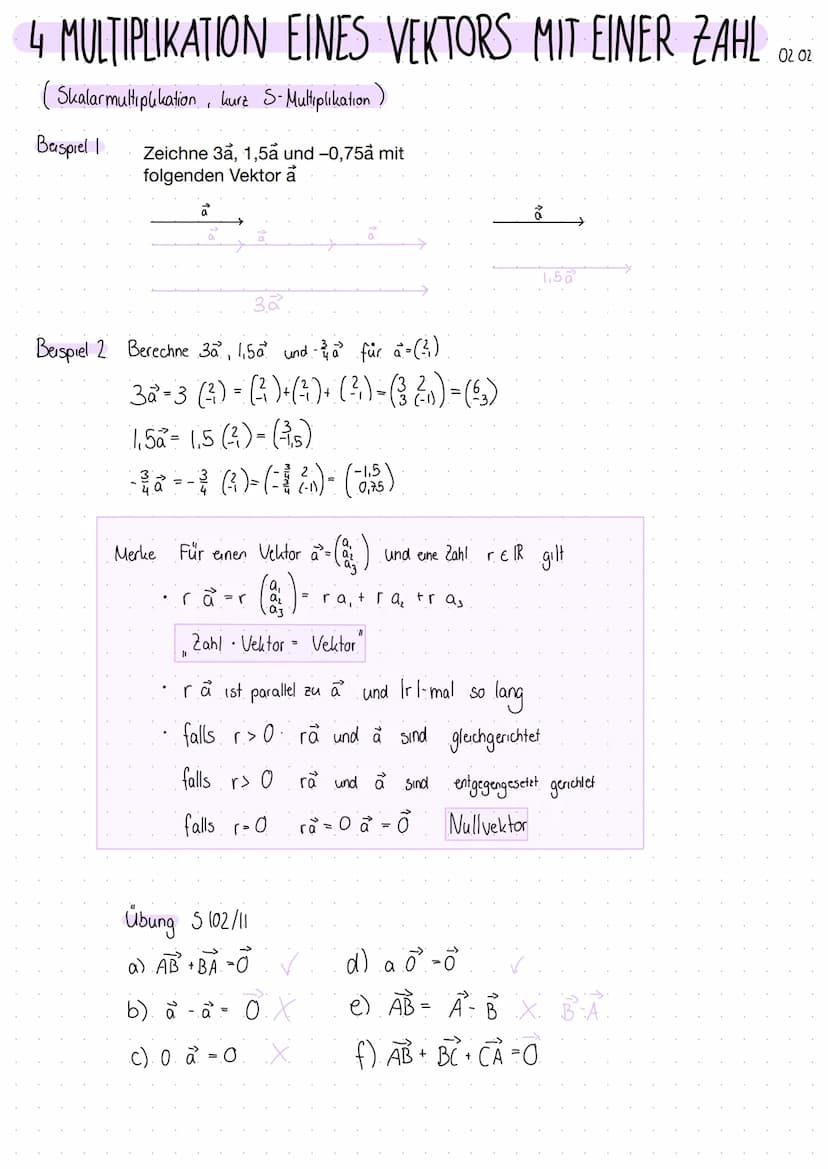 4 MULTIPLIKATION EINES VEKTORS MIT EINER ZAHL 02 02
(Skalarmultiplikation, kurz S-Multiplikation)
Beispiel 1 Zeichne 3a⃗, 1,5a⃗ und –0,75a⃗ mit
folgenden Vektor a⃗
a⃗ a⃗
a⃗ a⃗ a⃗
1,5a⃗
3a⃗
Beispiel 2 Berechne 3a⃗, 1,5a⃗ und -3/4 a⃗ für a⃗ = (2 -1)
3a⃗ = 3 (2 -1) = (2 -1) + (2 -1) + (2 -1) = (3 2 3 (-1)) = (6 -3)
1,5a⃗ = 1,5 (2 -1) = (3 -1,5)
-3/4 a⃗ = -3/4 (2 -1) = (-3/4 2 -3/4 (-1)) = (-1,5 0,75)
Merke Für einen Vektor a⃗ = (a₁ a₂ a₃) und eine Zahl r ∈ ℝ gilt
• r a⃗ = r (a₁ a₂ a₃) = r a₁ + r a₂ + r a₃
„Zahl · Vektor = Vektor"
• r a⃗ ist parallel zu a⃗ und |r|-mal so lang
• falls r > 0 ra⃗ und a⃗ sind gleichgerichtet
falls r > 0 ra⃗ und a⃗ sind entgegengesetet gerichtet
falls r = 0 ra⃗ = 0 a⃗ = 0⃗ Nullvektor
Übung S 102/11
a) AB⃗ + BA⃗ = 0⃗ ✓ d) a 0⃗ = 0⃗ ✓
b) a⃗ - a⃗ = 0⃗ X e) AB⃗ = A⃗ - B⃗ X B⃗-A⃗
c) 0 a⃗ = 0 X f) AB⃗ + BC⃗ + CA⃗ = 0⃗